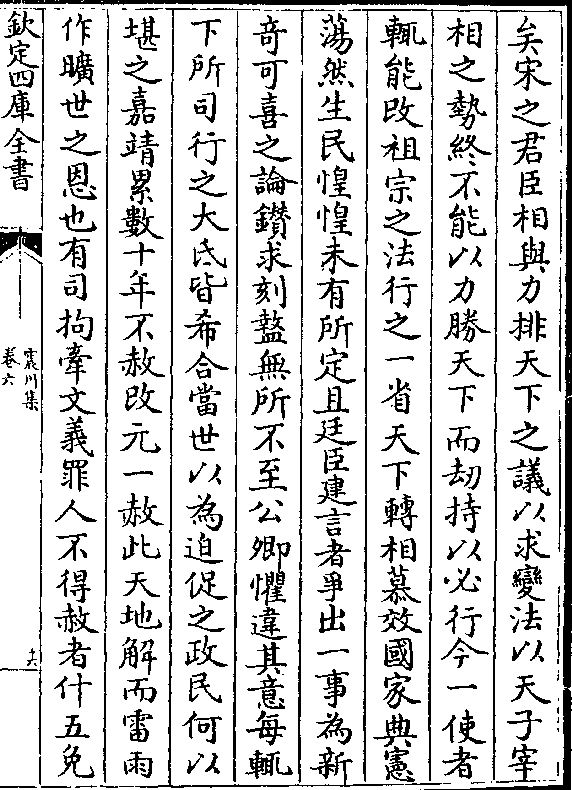 矣宋之君臣相與力排天下之議以求變法以天子宰
相之勢終不能以力勝天下而劫持以必行今一使者
輒能改祖宗之法行之一省天下轉相慕效國家典憲
蕩然生民惶惶未有所定且廷臣建言者爭出一事為新
竒可喜之論鑚求刻盩無所不至公卿懼違其意每輒
下所司行之大氐皆希合當世以為迫促之政民何以
堪之嘉靖累數十年不赦改元一赦此天地解而雷雨
作曠世之恩也有司拘牽文義罪人不得赦者什五免
欽定四庫全書
震川集
卷六
十六